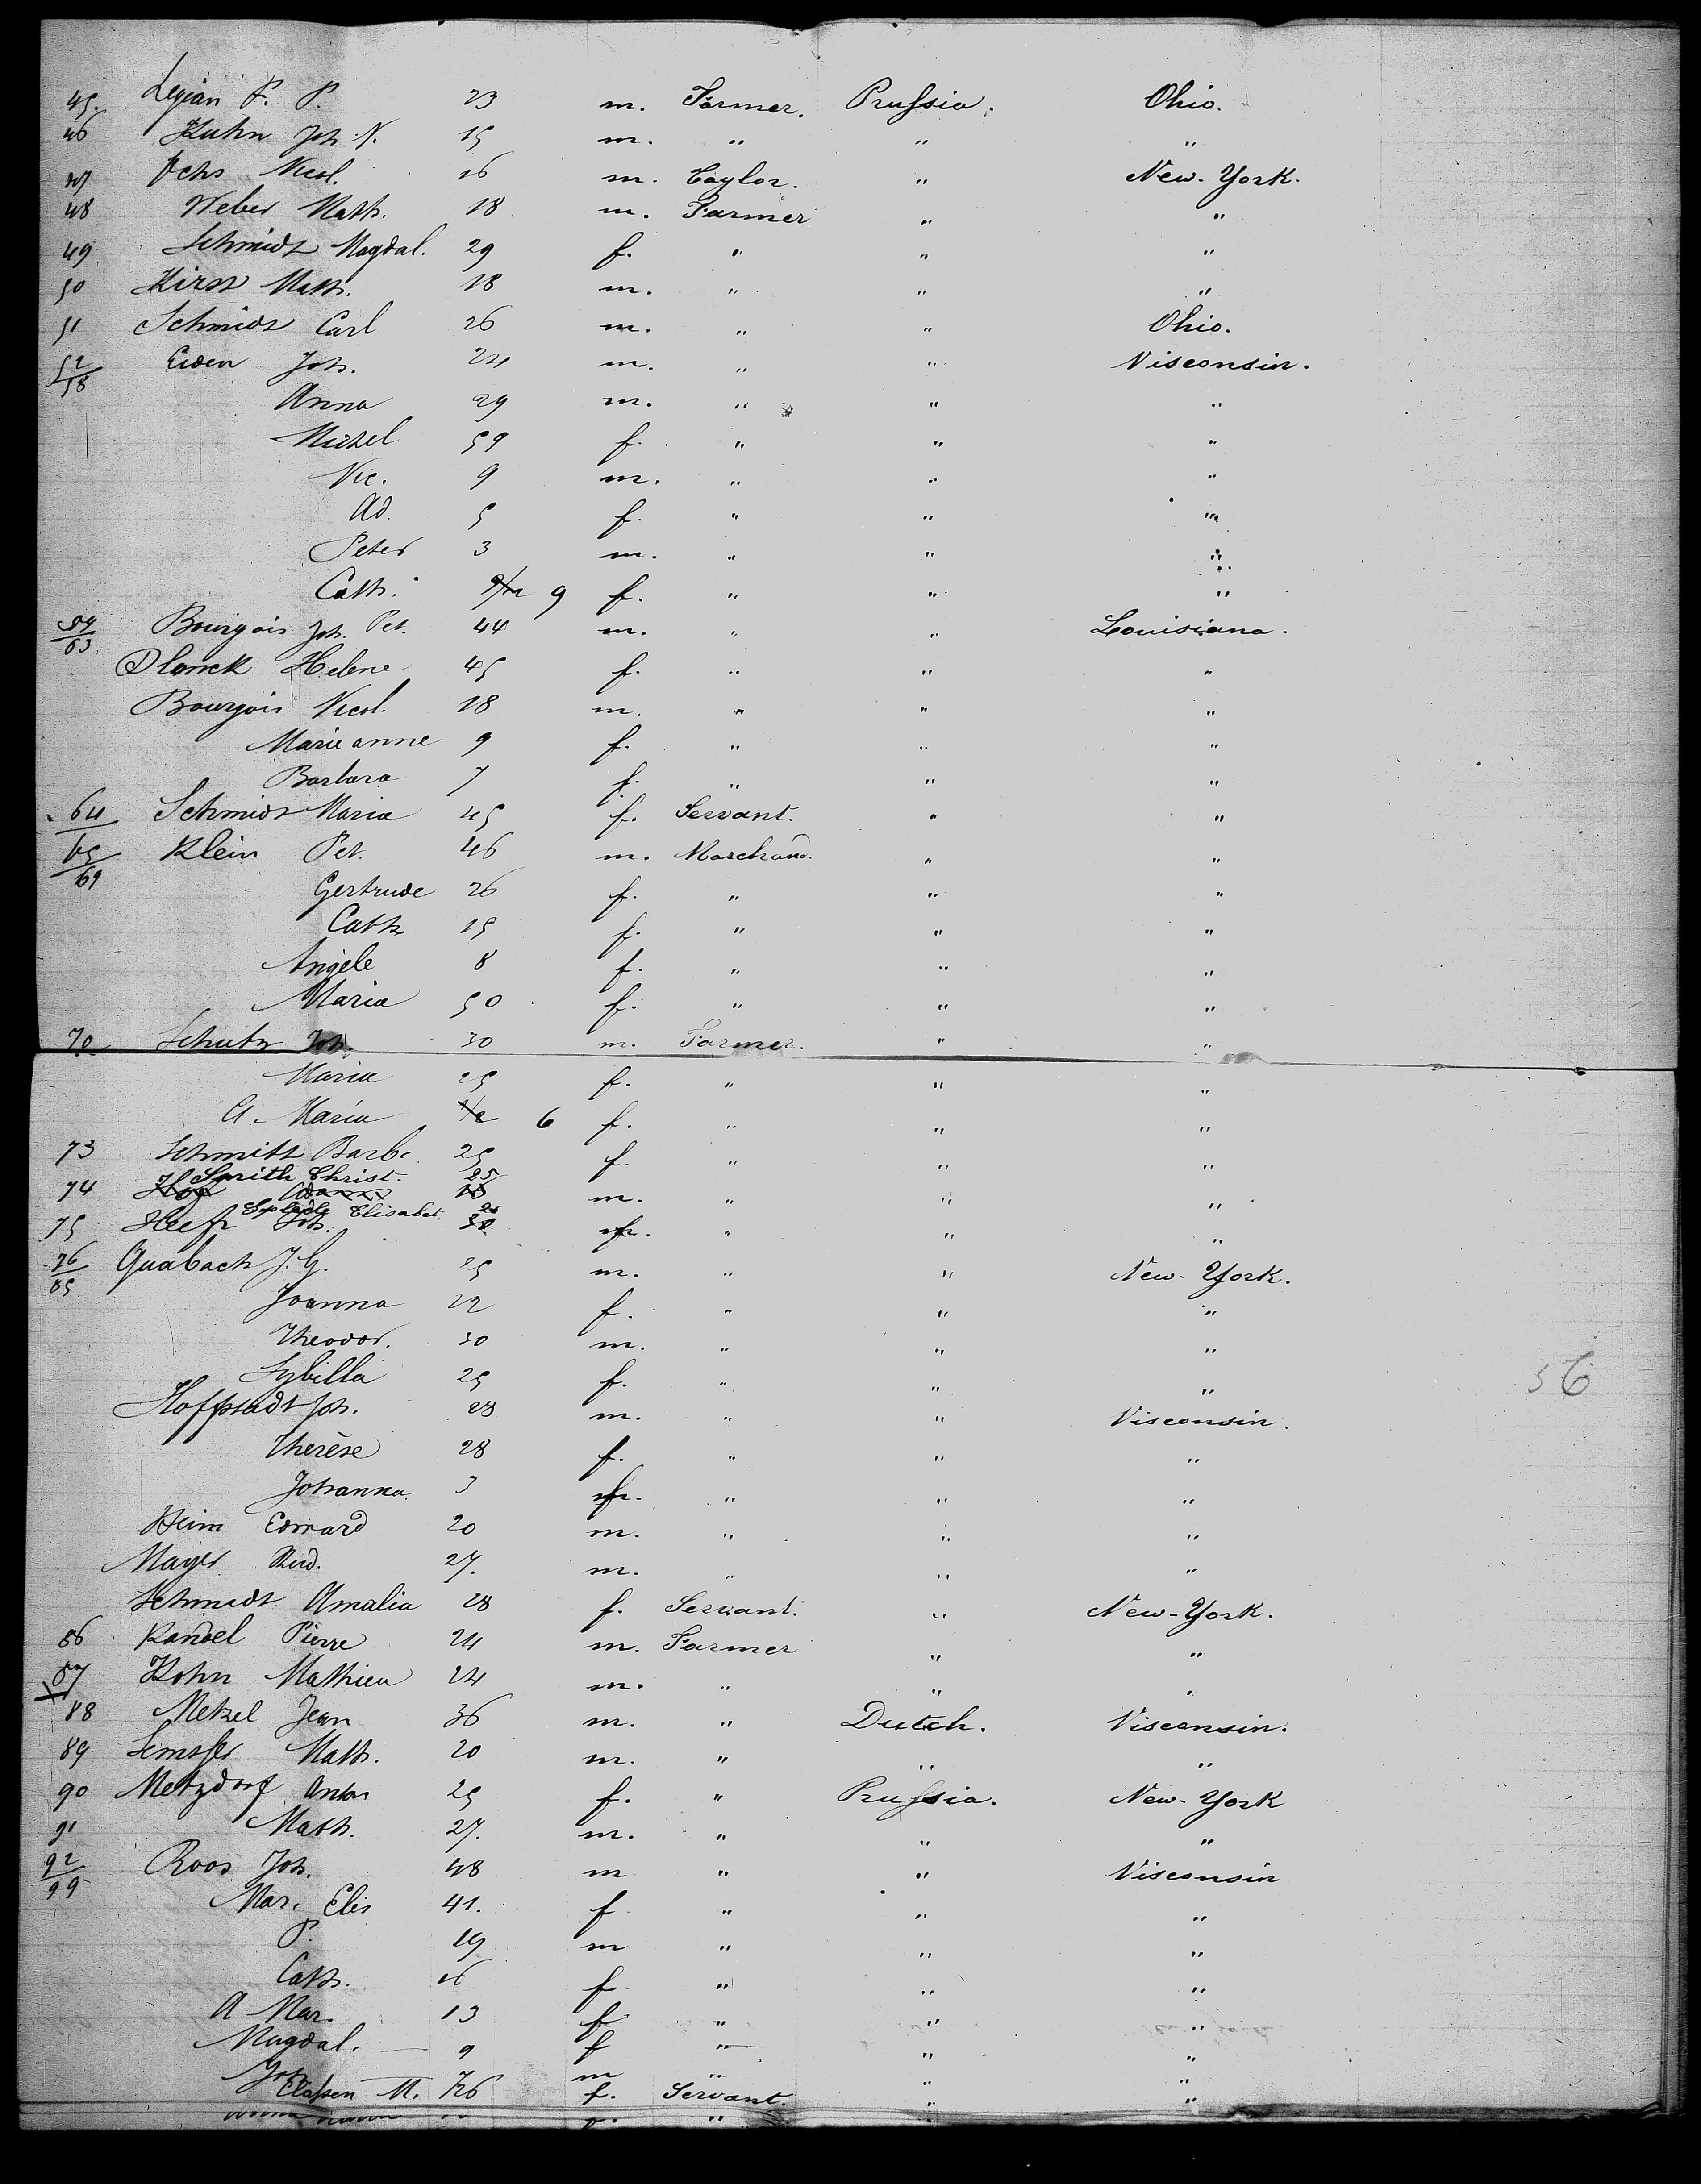 45. Legian P. P. 23 m. Farmer. Prussia. Ohio.
46 Kuhn Joh. N. 15 m. " " "
47 Ochs Nicol. 16 m. Taylor. " New-York.
48 Weber Math. 18 m. Farmer " "
49 Schmidt Magdal. 29 f. " " "
50 Kirst Math. 18 m. " " "
51 Schmidt Carl 26 m. " " Ohio.
52/58 Eiden Joh. 24 m. " " Visconsin.
Anna 29 m. " " "
Michel 59 f. " " "
Nic. 9 m. " " "
Ad. 5 f. " " "
Peter 3 m. " " "
Cath. 9 f. " " "
59/63 Bourgois Joh. Pet. 44 m. " " Louisiana.
Planck Helene 45 f. " " "
Bourgois Nicol. 18 m. " " "
Marieanne 9 f. " " "
Barbara 7 f. " " "
64 Schmidt Maria 45 f. Servant. " "
65/69 Klein Pet. 46 m. Marchand. " "
Gertrude 26 f. " " "
Cath. 15 f. " " "
Angele 8 f. " " "
Maria 50 f. " " "
70 Schutz Joh. 30 m. Farmer. " "
Maria 25 f. " " "
A. Maria 6 f. " " "
73 Schmitt Barb. 25 f. " " "
Smith Christ. 25
74 m. " " "
Elisabet.
75 Joh. " " "
76/85 Quabach J. G. 25 m. " " New-York.
Joanna 22 f. " " "
Theodor. 30 m. " " "
Sybilla 25 f. " " "
56
Hoffstadt Joh. 28 m. " " Visconsin.
Therèse 28 f. " " "
Johanna 3 f. " " "
Heim Edward 20 m. " " "
Mayer Rud. 27. m. " " "
Schmidt Amalia 28 f. Servant. " New-York.
86 Kandel Pierre 24 m. Farmer " "
87 Kohn Mathieu 24 m. " " "
88 Metzel Jean 36 m. " Dutch. Visconsin.
89 Math. 20 m. " " "
90 Metzdorf Anton 25 f. " Prussia. New-York
91 Math. 27. m. " " "
92/99 Roos Joh. 48 m " " Visconsin
Mar. Elis 41. f " " "
P. 19 m " " "
Cath. 16 f " " "
A Mar. 13 f " " "
Magdal. — 9 f " " "
Joh. 7 m " " "
Classen M. 26 f. Servant. " "